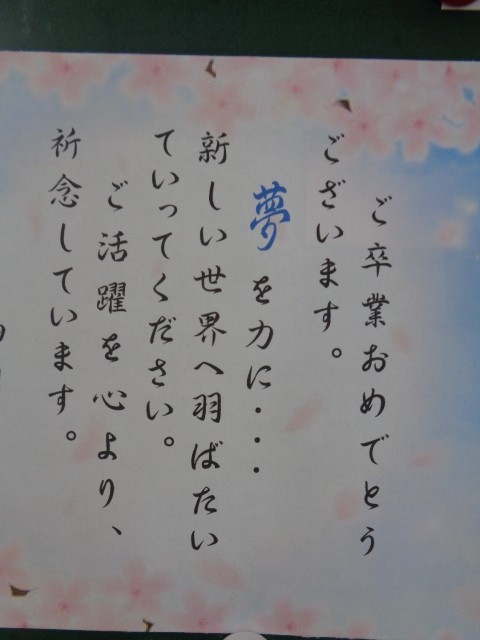 ご卒業おめでとう
ございます。
夢を力に・・・
新しい世界へ羽ばたい
ていってください。
ご活躍を心より、
祈念しています。